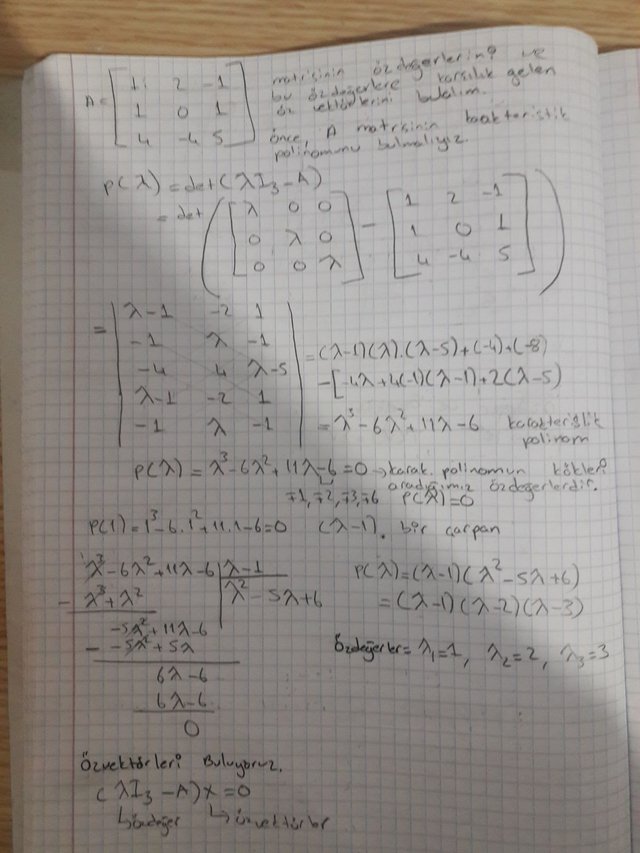 A = [ 1 2 -1
1 0 1
4 -4 5 ]
matrisinin özdeğerlerini ve
bu özdeğerlere karşılık gelen
öz vektörlerini bulalım.
önce, A matrisinin karakteristik
polinomunu bulmalıyız.
P(λ) = det(λI₃-A)
= det ( [ λ 0 0 ] - [ 1 2 -1 ] )
[ 0 λ 0 ] [ 1 0 1 ]
[ 0 0 λ ] [ 4 -4 5 ]
= | λ-1 -2 1 |
| -1 λ -1 |
| -4 4 λ-5 |
| λ-1 -2 1 |
| -1 λ -1 |
= (λ-1)(λ).(λ-5)+(-4)+(-8)
-[-4λ+4(-1)(λ-1)+2(λ-5)
= λ³-6λ²+11λ-6 karakteristik
polinom
P(λ)=λ³-6λ²+11λ-6=0 → karak. polinomun kökleri
aradığımız özdeğerlerdir.
∓1, ∓2, ∓3, ∓6 P(λ)=0
P(1)=1³-6.1²+11.1-6=0 (λ-1). bir çarpan
λ³-6λ²+11λ-6 | λ-1
- λ³+λ² | λ²-5λ+6
-5λ²+11λ-6
- -5λ²+5λ
6λ-6
6λ-6
0
P(λ)=(λ-1)(λ²-5λ+6)
=(λ-1)(λ-2)(λ-3)
Özdeğerler= λ₁=1, λ₂=2, λ₃=3
Özvektörleri Buluyoruz.
(λI₃-A)x=0
↳özdeğer ↳özvektörler